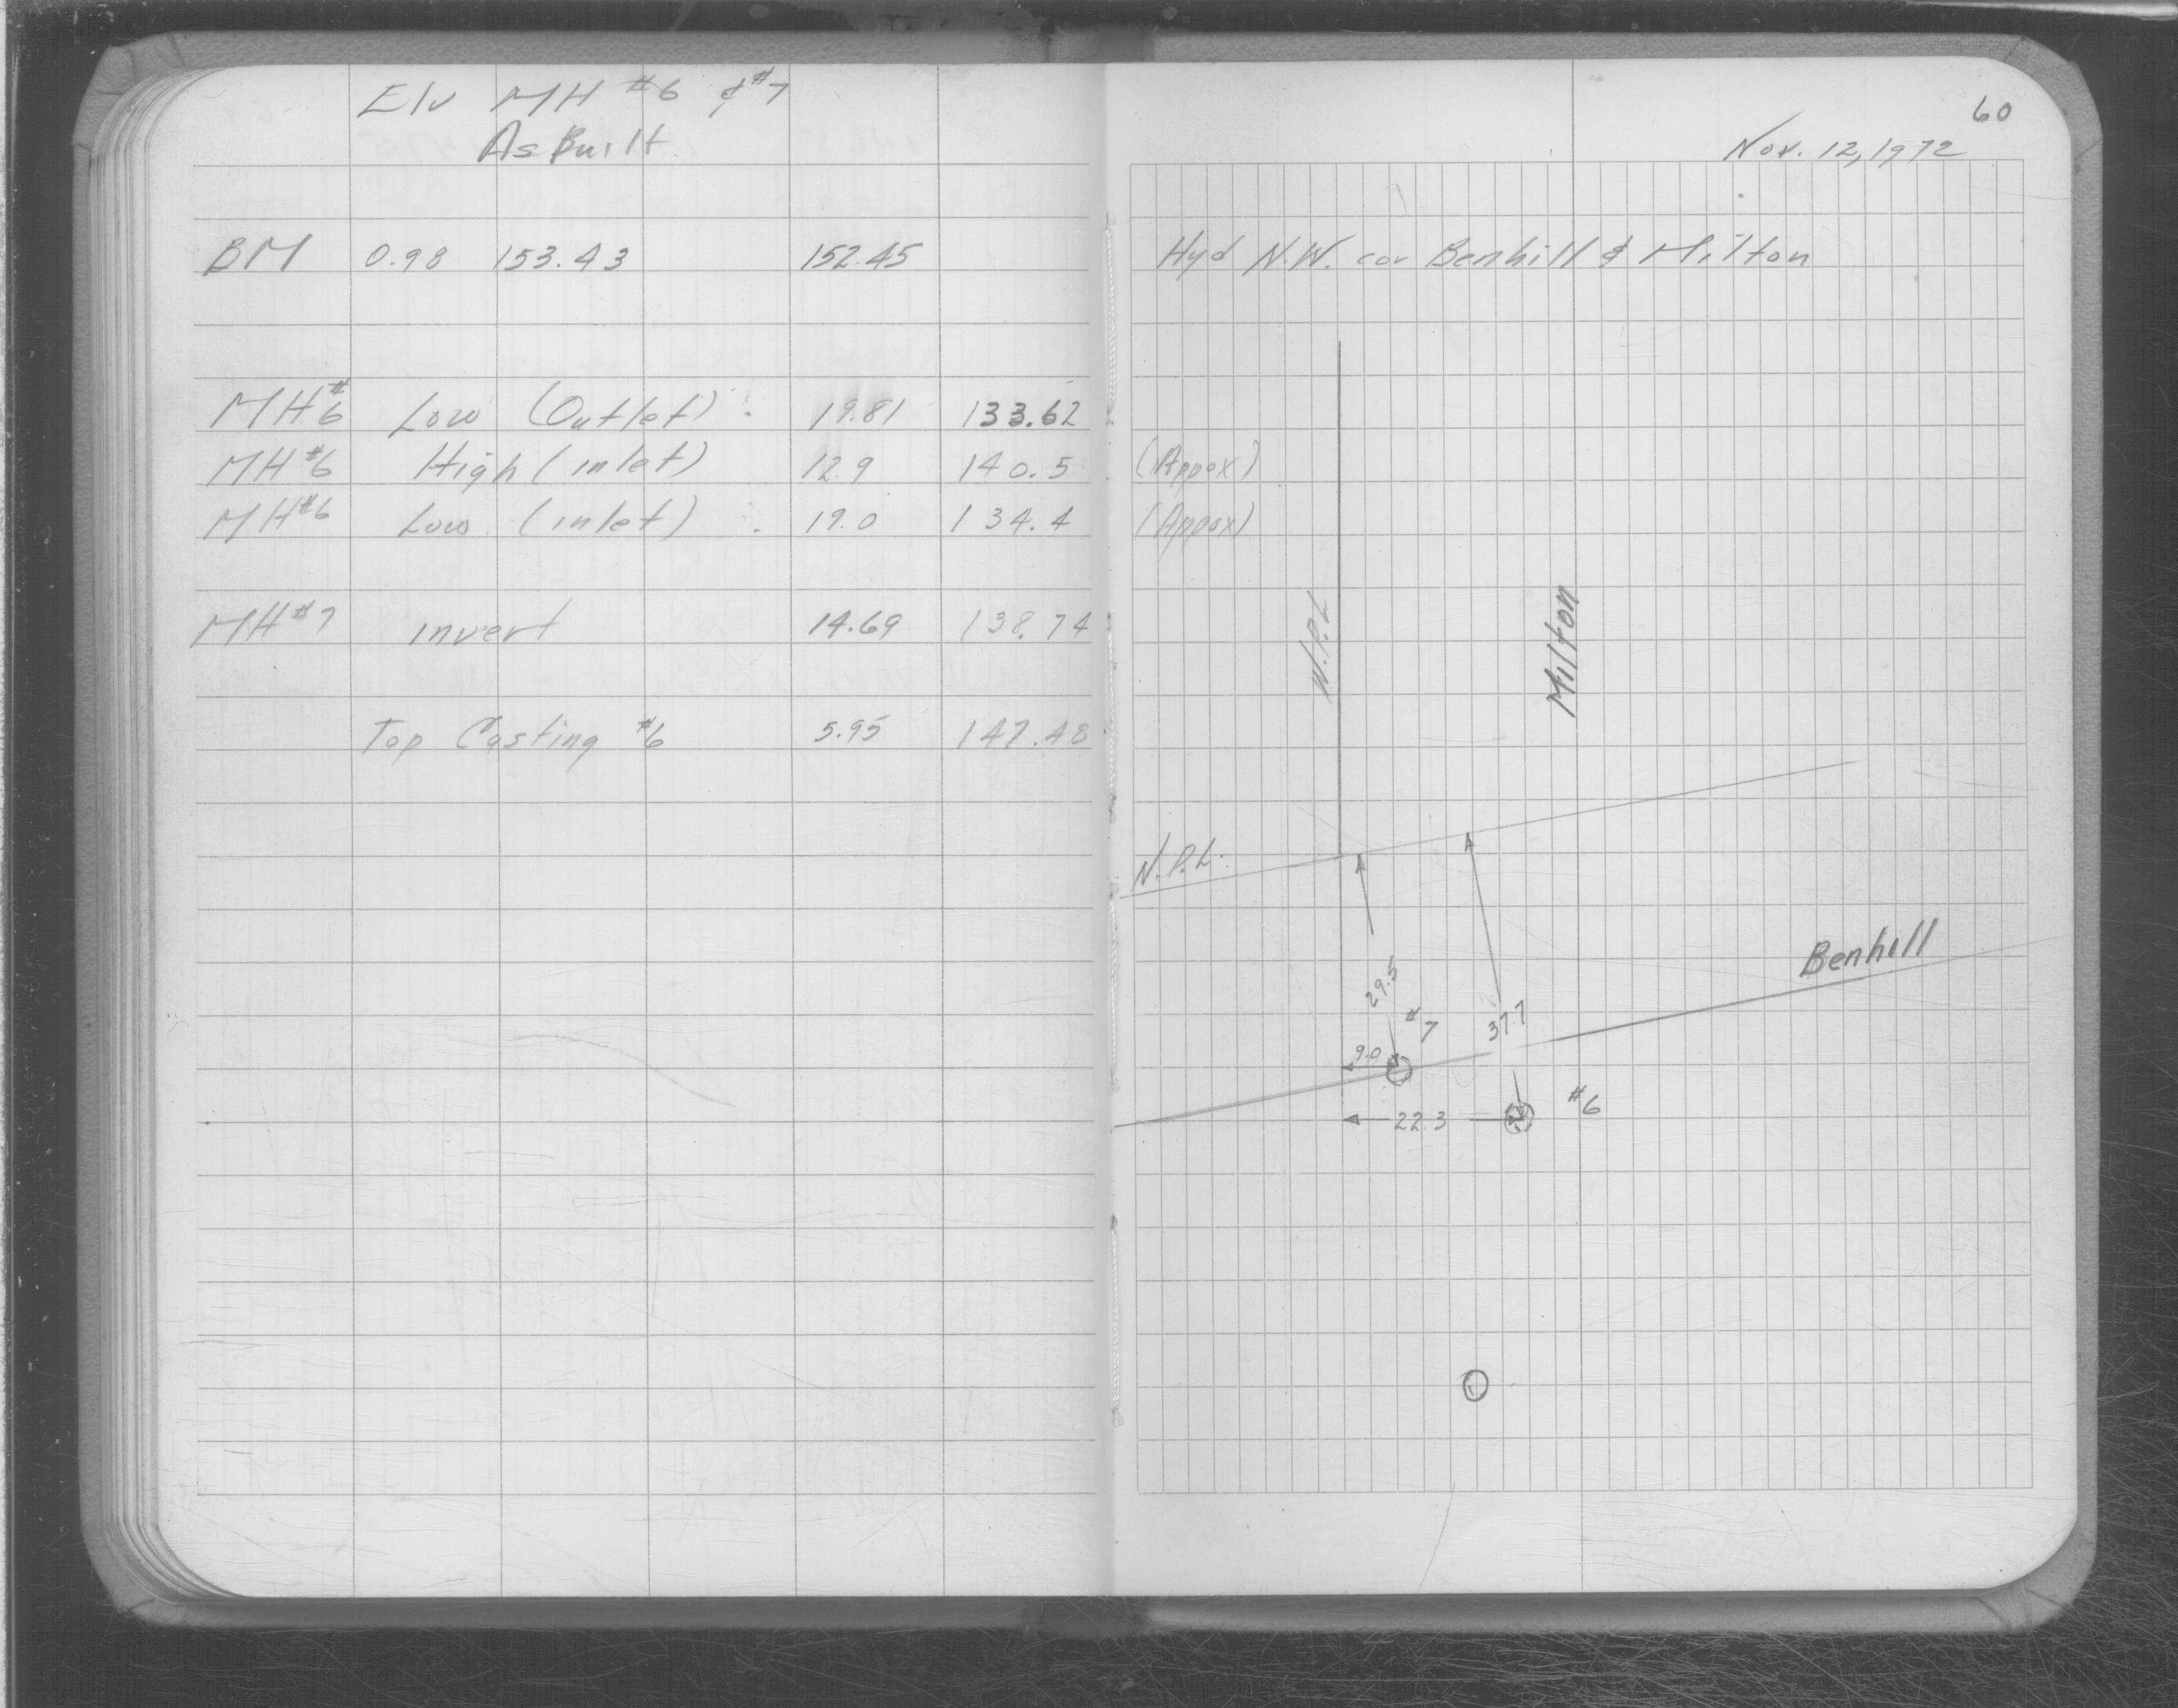 Elv MH #6 & #7
As Built
60
Nov. 12, 1972
BM 0.98 153.43 152.45 Hyd N.W. cor Benhill & Milton
MH#6 Low (Outlet) 19.81 133.62
MH#6 High (inlet) 12.9 140.5 (Appox)
MH#6 Low (inlet) 19.0 134.4 (Appox)
MH#7 invert 14.69 138.74
Top Casting #6 5.95 147.48
W.P.L
Milton
N.P.L.
Benhill
29.5
#7
37.7
9.0
22.3
#6